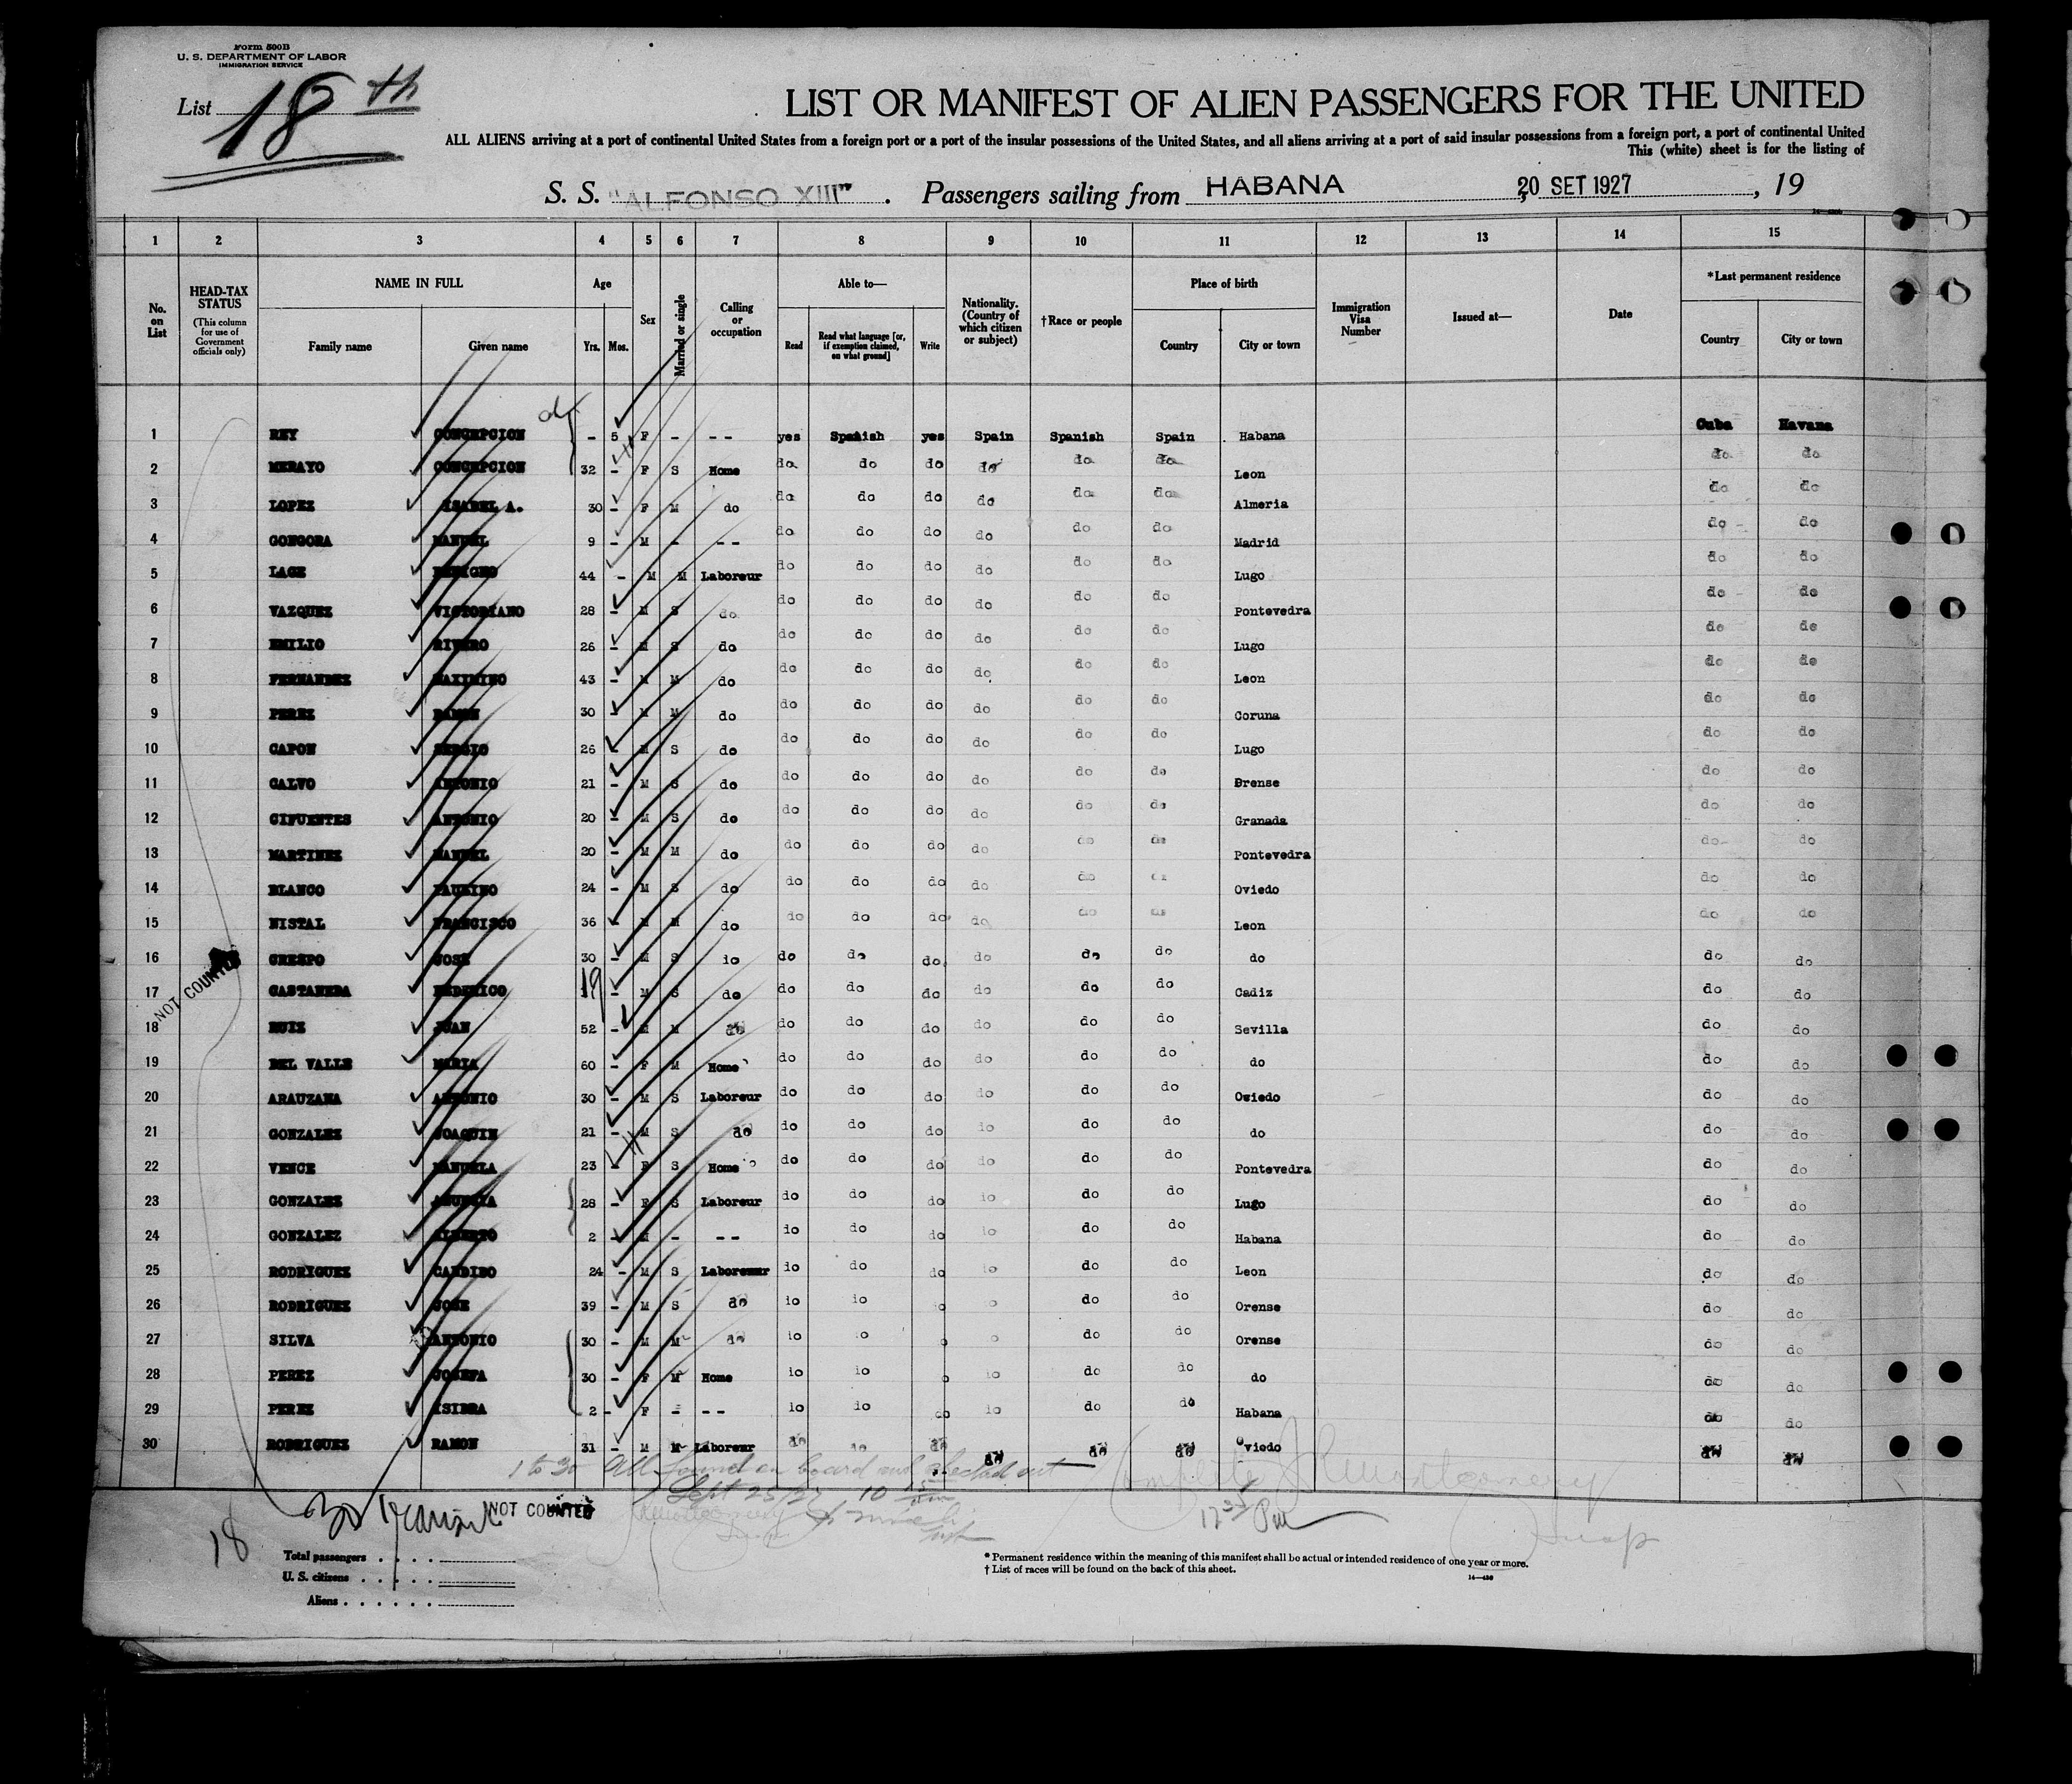 Form 500B
U. S. DEPARTMENT OF LABOR
IMMIGRATION SERVICE
List 18th
LIST OR MANIFEST OF ALIEN PASSENGERS FOR THE UNITED
ALL ALIENS arriving at a port of continental United States from a foreign port or a port of the insular possessions of the United States, and all aliens arriving at a port of said insular possessions from a foreign port, a port of continental United
This (white) sheet is for the listing of
S. S. "ALFONSO XIII" . Passengers sailing from HABANA 20 SET 1927, 19
1 2 3 4 5 6 7 8 9 10 11 12 13 14 15
No. on List
HEAD-TAX STATUS (This column for use of Government officials only)
NAME IN FULL Family name Given name
Age Yrs. Mos.
Sex
Married or single
Calling or occupation
Able to— Read Read what language [or, if exemption claimed, on what ground] Write
Nationality. (Country of which citizen or subject)
†Race or people
Place of birth Country City or town
Immigration Visa Number
Issued at—
Date
*Last permanent residence Country City or town
1 REY CONCEPCION - 5 F - -- yes Spanish yes Spain Spanish Spain Habana Cuba Havana
2 MERAYO CONCEPCION 32 - F S Home do do do do do do Leon do do
3 LOPEZ ISABEL A. 30 - F M do do do do do do do Almeria do do
4 GONGORA MANUEL 9 - M - -- do do do do do do Madrid do do
5 LAGE BENIGNO 44 - M M Laboreur do do do do do do Lugo do do
6 VAZQUEZ VICTORIANO 28 - M S do do do do do do do Pontevedra do do
7 EMILIO RIVERO 26 - M S do do do do do do do Lugo do do
8 FERNANDEZ MAXIMINO 43 - M M do do do do do do do Leon do do
9 PEREZ RAMON 30 - M M do do do do do do do Coruna do do
10 CAPON SERGIO 26 - M S do do do do do do do Lugo do do
11 CALVO ANTONIO 21 - M S do do do do do do do Orense do do
12 CIFUENTES ANTONIO 20 - M S do do do do do do do Granada do do
13 MARTINEZ MANUEL 20 - M M do do do do do do do Pontevedra do do
14 BLANCO PAULINO 24 - M S do do do do do do do Oviedo do do
15 NISTAL FRANCISCO 36 - M M do do do do do do do Leon do do
16 CRESPO JOSE 30 - M S do do do do do do do do do do
17 CASTANEDA FEDERICO 19 - M S do do do do do do do Cadiz do do
18 RUIZ JUAN 52 - M M do do do do do do do Sevilla do do
19 DEL VALLE MARIA 60 - F M Home do do do do do do do do do
20 ARAUZANA ANTONIO 30 - M S Laboreur do do do do do do Oviedo do do
21 GONZALEZ JOAQUIN 21 - M S do do do do do do do do do do
22 VENCE MANUELA 23 - F S Home do do do do do do Pontevedra do do
23 GONZALEZ 28 - F S Laboreur do do do do do do Lugo do do
24 GONZALEZ ALBERTO 2 - M - -- do do do do do do Habana do do
25 RODRIGUEZ CANDIDO 24 - M S Laboreur do do do do do do Leon do do
26 RODRIGUEZ JOSE 39 - M S do do do do do do do Orense do do
27 SILVA ANTONIO 30 - M M do do do do do do do Orense do do
28 PEREZ JOSEFA 30 - F M Home do do do do do do do do do
29 PEREZ ISIDRA 2 - F - -- do do do do do do Habana do do
30 RODRIGUEZ RAMON 31 - M M Laboreur do do do do do do Oviedo do do
NOT COUNTED
1 to 30 All found on board and checked out
Sept 25/27 10
Complete
NOT COUNTED
18
Total passengers . . . .
U. S. citizens . . . . .
Aliens . . . . . .
* Permanent residence within the meaning of this manifest shall be actual or intended residence of one year or more.
† List of races will be found on the back of this sheet.